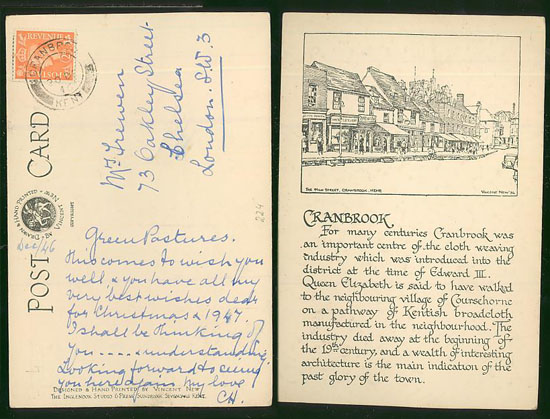 REVENUE
CRANBROOK
KENT
POST CARD
DRAWN & HAND PRINTED BY VINCENT NEW
Mrs Frewen
73 Oakley Street
Chelsea
London. S.W.3
224
Dec/46
Green Pastures.
This comes to wish you
well & you have all my
very best wishes dear
for Christmas & 1947.
I shall be thinking of
you ..... & understanding.
Looking forward to seeing
you here again. My love
CH.
DESIGNED & HAND PRINTED BY VINCENT NEW
THE INGLENOOK STUDIO & PRESS, CRANBROOK, KENT.
THE HIGH STREET, CRANBROOK, KENT.
VINCENT NEW
CRANBROOK.
For many centuries Cranbrook was
an important centre of the cloth weaving
industry which was introduced into the
district at the time of Edward III.
Queen Elizabeth is said to have walked
to the neighbouring village of Coursehorne
on a pathway of Kentish broadcloth
manufactured in the neighbourhood. The
industry died away at the beginning of
the 19th century, and a wealth of interesting
architecture is the main indication of the
past glory of the town.